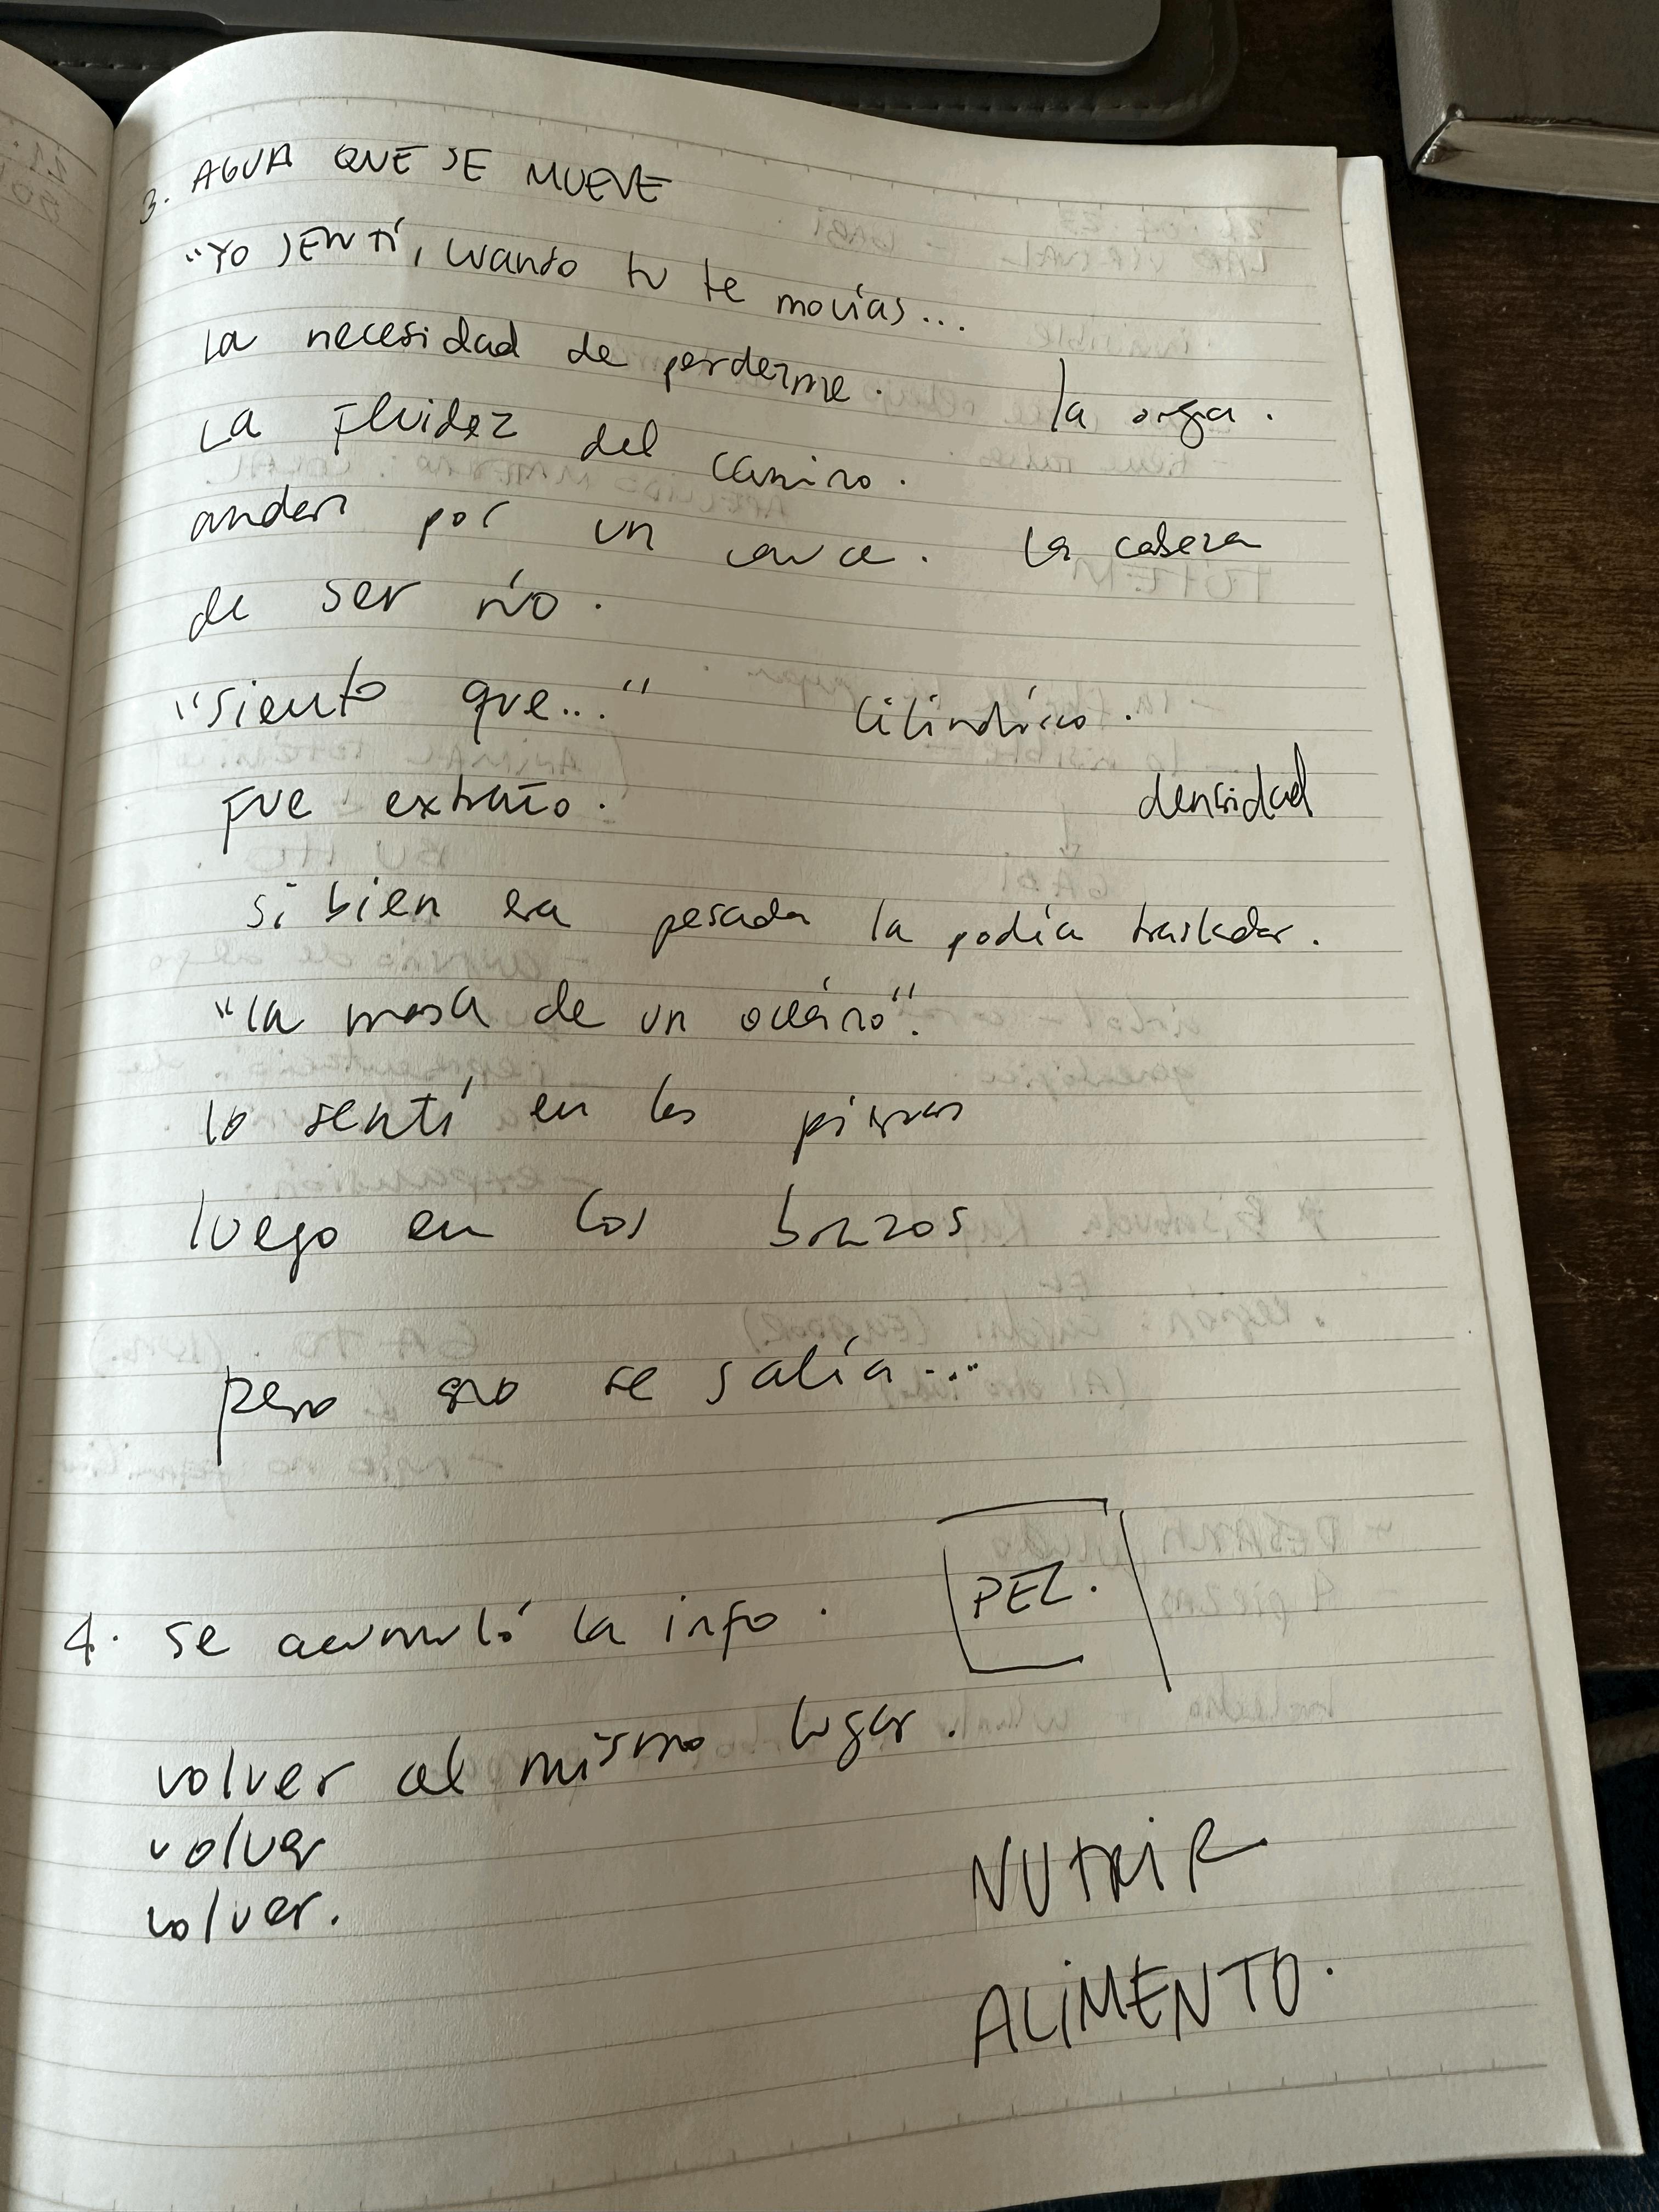 3. AGUA QUE SE MUEVE
"YO SENTÍ, cuando tu te movías...
La necesidad de perderme.
La Fluidez del camino. la orga.
andar por un cauce. La cabeza
de ser río.
"siento que..." Cilíndrico.
FUE extraño. densidad
si bien era pesada la podía trasladar.
"la masa de un océano".
lo sentí en las piernas
luego en los brazos
pero no se salía...
4. se acumuló la info. PEZ.
volver al mismo lugar.
volver
volver.
NUTRIR
ALIMENTO.